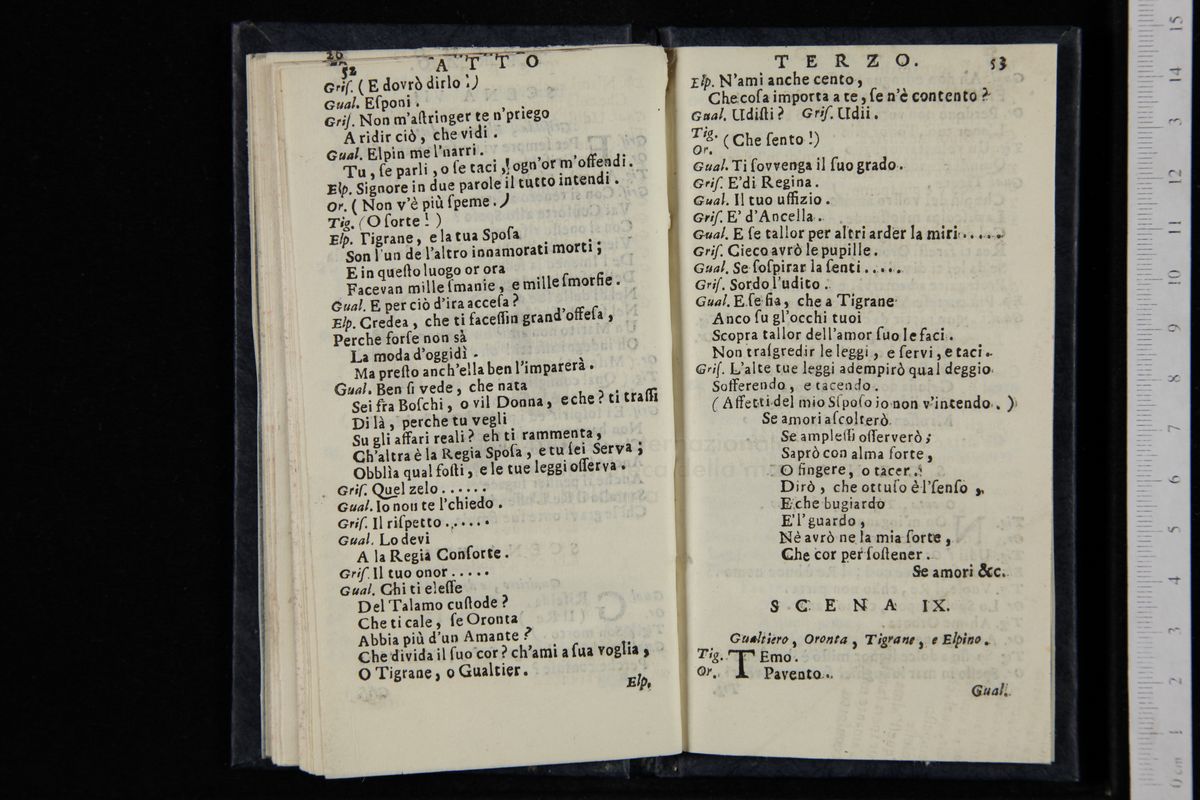 52
ATTO
Griſ. (E dovrò dirlo!)
Gual. Eſponi.
Griſ. Non m'aſtringer te n'priego
A ridir ciò, che vidi.
Gual. Elpin me l'narri.
Tu, ſe parli, o ſe taci, ogn'or m'offendi.
Elp. Signore in due parole il tutto intendi.
Or. (Non v'è più ſpeme.)
Tig. (O ſorte!)
Elp. Tigrane, e la tua Spoſa
Son l'un de l'altro innamorati morti;
E in queſto luogo or ora
Facevan mille ſmanie, e mille ſmorfie.
Gual. E per ciò d'ira acceſa?
Elp. Credea, che ti faceſſin grand'offeſa,
Perche forſe non sà
La moda d'oggidì.
Ma preſto anch'ella ben l'imparerà.
Gual. Ben ſi vede, che nata
Sei fra Boſchi, o vil Donna, e che? ti traſſi
Di là, perche tu vegli
Su gli affari reali? eh ti rammenta,
Ch'altra è la Regia Spoſa, e tu ſei Serva;
Obblìa qual foſti, e le tue leggi oſſerva.
Griſ. Quel zelo......
Gual. Io non te l'chiedo.
Griſ. Il riſpetto......
Gual. Lo devi
A la Regia Conforte.
Griſ. Il tuo onor.....
Gual. Chi ti eleſſe
Del Talamo cuſtode?
Che ti cale, ſe Oronta
Abbia più d'un Amante?
Che divida il ſuo cor? ch'ami a ſua voglia,
O Tigrane, o Gualtier.
Elp.
TERZO.
53
Elp. N'ami anche cento,
Che coſa importa a te, ſe n'è contento?
Gual. Udiſti? Griſ. Udii.
Tig.
Or. (Che ſento!)
Gual. Ti ſovvenga il ſuo grado.
Griſ. E' di Regina.
Gual. Il tuo uffizio.
Griſ. E' d'Ancella.
Gual. E ſe tallor per altri arder la miri.....
Griſ. Cieco avrò le pupille.
Gual. Se ſoſpirar la ſenti.....
Griſ. Sordo l'udito.
Gual. E ſe ſia, che a Tigrane
Anco ſu gl'occhi tuoi
Scopra tallor dell'amor ſuo le faci.
Non traſgredir le leggi, e ſervi, e taci.
Griſ. L'alte tue leggi adempirò qual deggio
Sofferendo, e tacendo.
(Affetti del mio Spoſo io non v'intendo.)
Se amori aſcolterò
Se ampleſſi oſſerverò;
Saprò con alma forte,
O fingere, o tacer.
Dirò, che ottuſo è l'ſenſo,
E che bugiardo
E'l'guardo,
Nè avrò ne la mia ſorte,
Che cor per ſoſtener.
Se amori &c.
SCENA IX.
Gualtiero, Oronta, Tigrane, e Elpino.
Tig. TEmo.
Or. Pavento.
Gual.